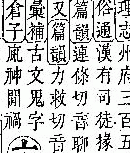 理志州府三百五
俗通漢有司徒掾
又篇韻連條切音聊
力救切音
彙補古文鬼字
倉子 神開禍